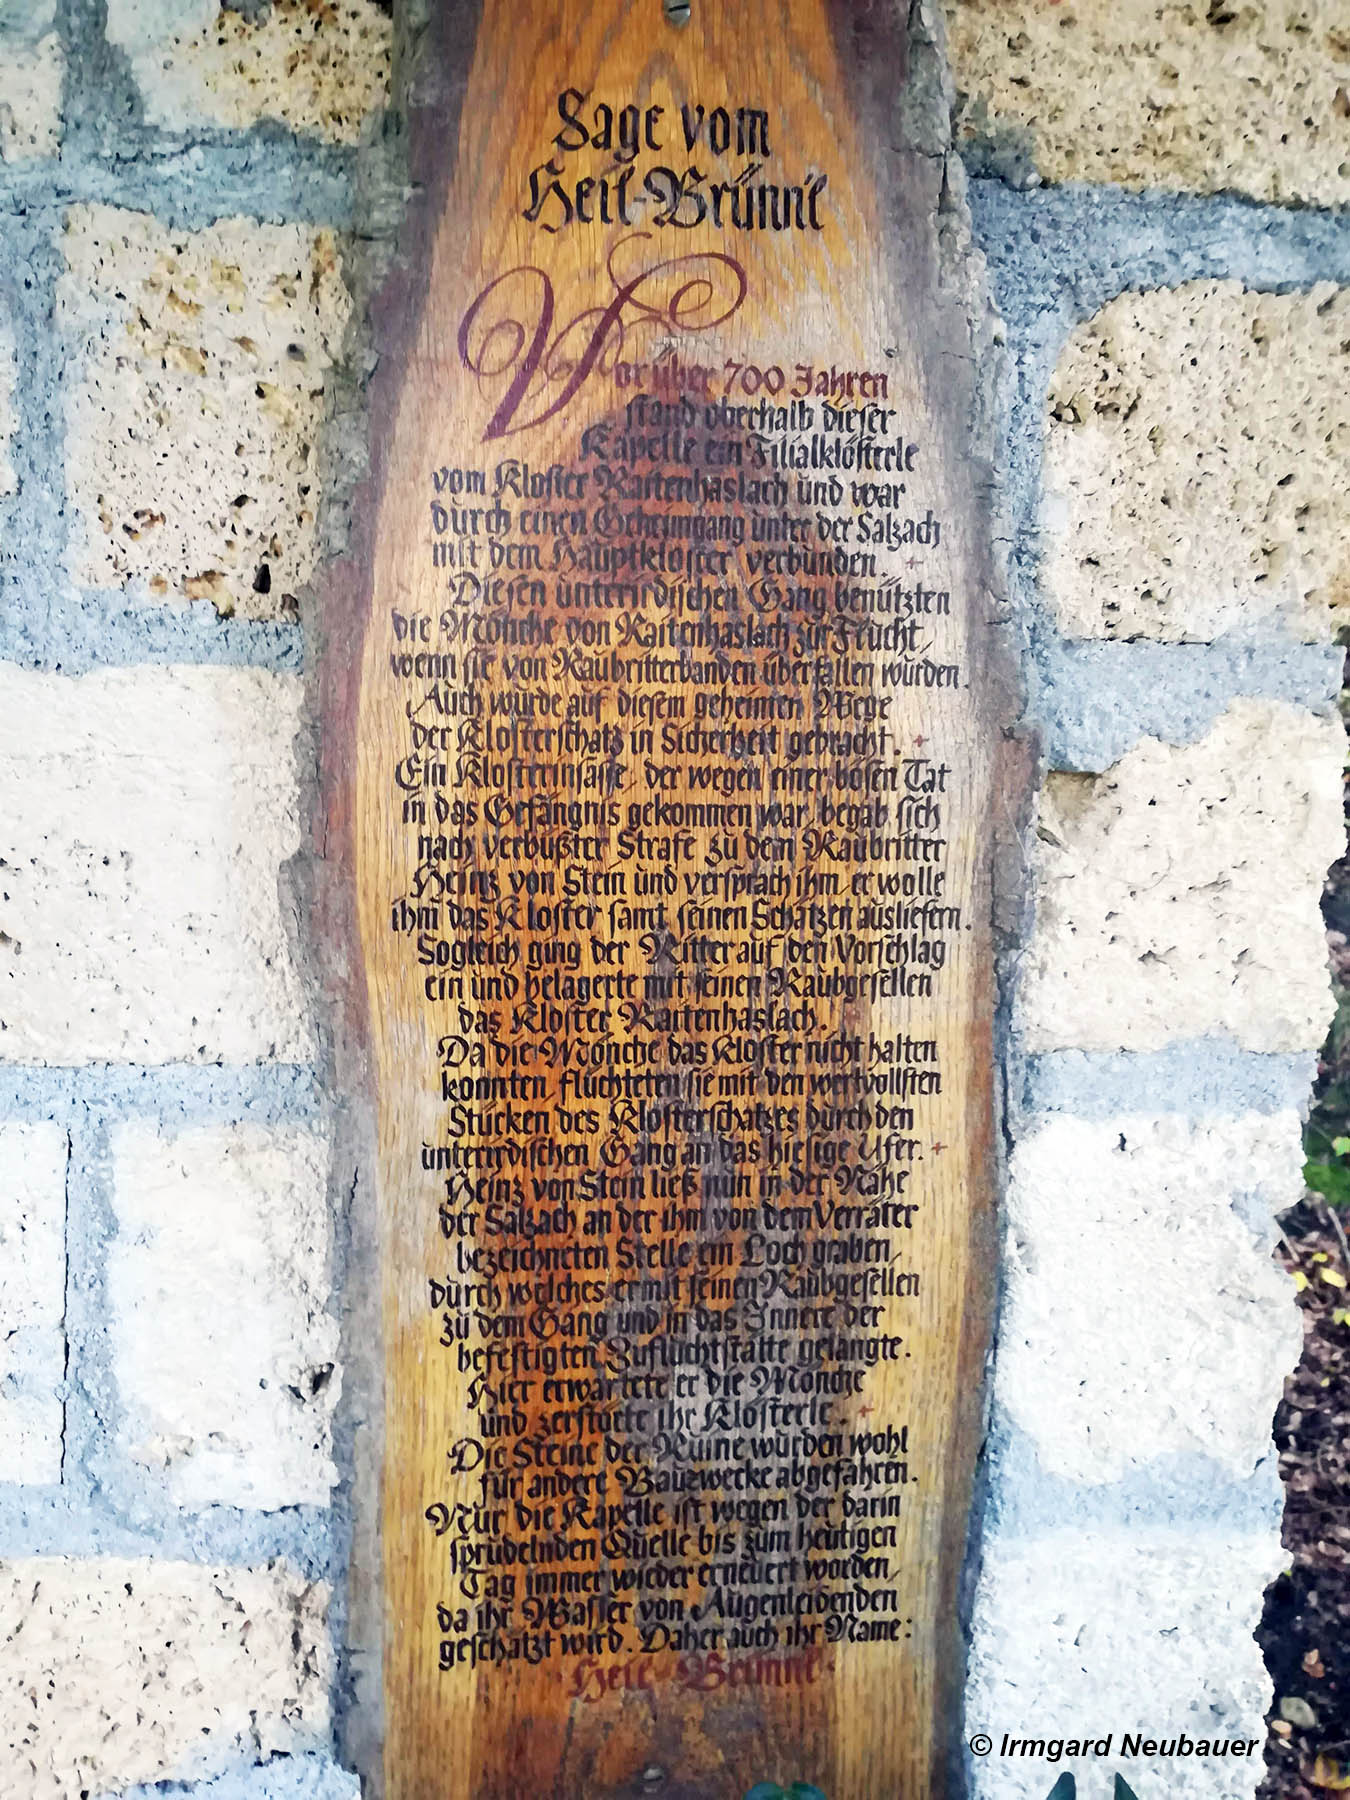 Sage vom
Heil-Brünnl
Vor über 700 Jahren
stand oberhalb dieser
Kapelle ein Filialklösterle
vom Kloster Raitenhaslach und war
durch einen Geheimgang unter der Salzach
mit dem Hauptkloster verbunden. +
Diesen unterirdischen Gang benützten
die Mönche von Raitenhaslach zur Flucht,
wenn sie von Raubritterbanden überfallen wurden.
Auch wurde auf diesem geheimen Wege
der Klosterschatz in Sicherheit gebracht. +
Ein Klosterinsasse, der wegen einer bösen Tat
in das Gefängnis gekommen war, begab sich
nach verbüßter Strafe zu dem Raubritter
Heinz von Stein und versprach ihm, er wolle
ihm das Kloster samt seinen Schätzen ausliefern.
Sogleich ging der Ritter auf den Vorschlag
ein und belagerte mit seinen Raubgesellen
das Kloster Raitenhaslach.
Da die Mönche das Kloster nicht halten
konnten, flüchteten sie mit den wertvollsten
Stücken des Klosterschatzes durch den
unterirdischen Gang an das hiesige Ufer. +
Heinz von Stein ließ nun in der Nähe
der Salzach an der ihm von dem Verräter
bezeichneten Stelle ein Loch graben,
durch welches er mit seinen Raubgesellen
zu dem Gang und in das Innere der
befestigten Zufluchtstätte gelangte.
Hier erwartete er die Mönche
und zerstörte ihr Klösterle. +
Die Steine der Ruine wurden wohl
für andere Bauzwecke abgefahren.
Nur die Kapelle ist wegen der darin
sprudelnden Quelle bis zum heutigen
Tag immer wieder erneuert worden,
da ihr Wasser von Augenleidenden
geschätzt wird. Daher auch ihr Name:
Heil-Brünnl.
© Irmgard Neubauer